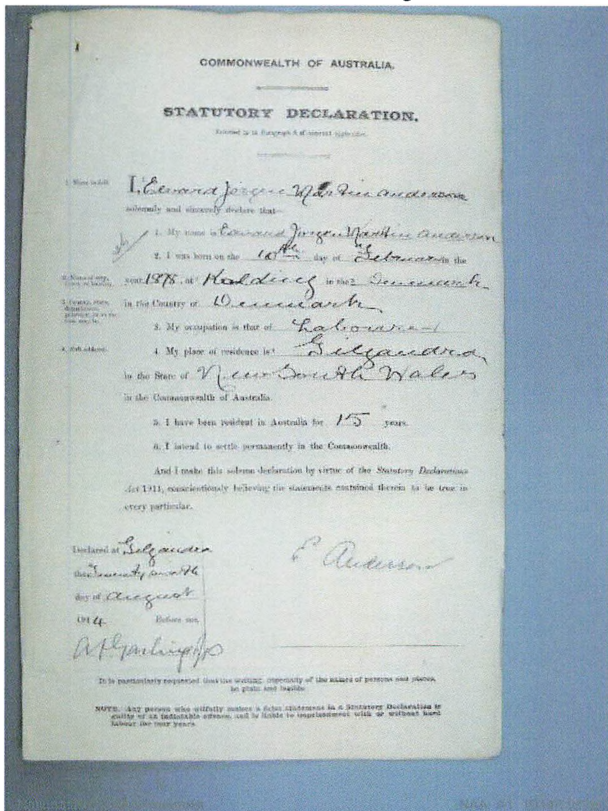 COMMONWEALTH OF AUSTRALIA.
STATUTORY DECLARATION.
Referred to in Paragraph 4 of annexed application.
1. Name in full.
I, Edward Jorgen Martin Anderson
solemnly and sincerely declare that—
1. My name is Edward Jorgen Martin Anderson
2. I was born on the 10th day of February in the
year 1878, at Kolding in the Denmark
in the Country of Denmark
3. My occupation is that of Labourer
4. Full address.
4. My place of residence is Gilgandra
in the State of New South Wales
in the Commonwealth of Australia.
5. I have been resident in Australia for 15 years.
6. I intend to settle permanently in the Commonwealth.
And I make this solemn declaration by virtue of the Statutory Declarations
Act 1911, conscientiously believing the statements contained therein to be true in
every particular.
Declared at Gilgandra
this Twenty
day of August
1914 Before me,
E Anderson
It is particularly requested that the writing, especially of the names of persons and places,
be plain and legible
NOTE. Any person who wilfully makes a false statement in a Statutory Declaration is
guilty of an indictable offence, and is liable to imprisonment with or without hard
labour for four years.